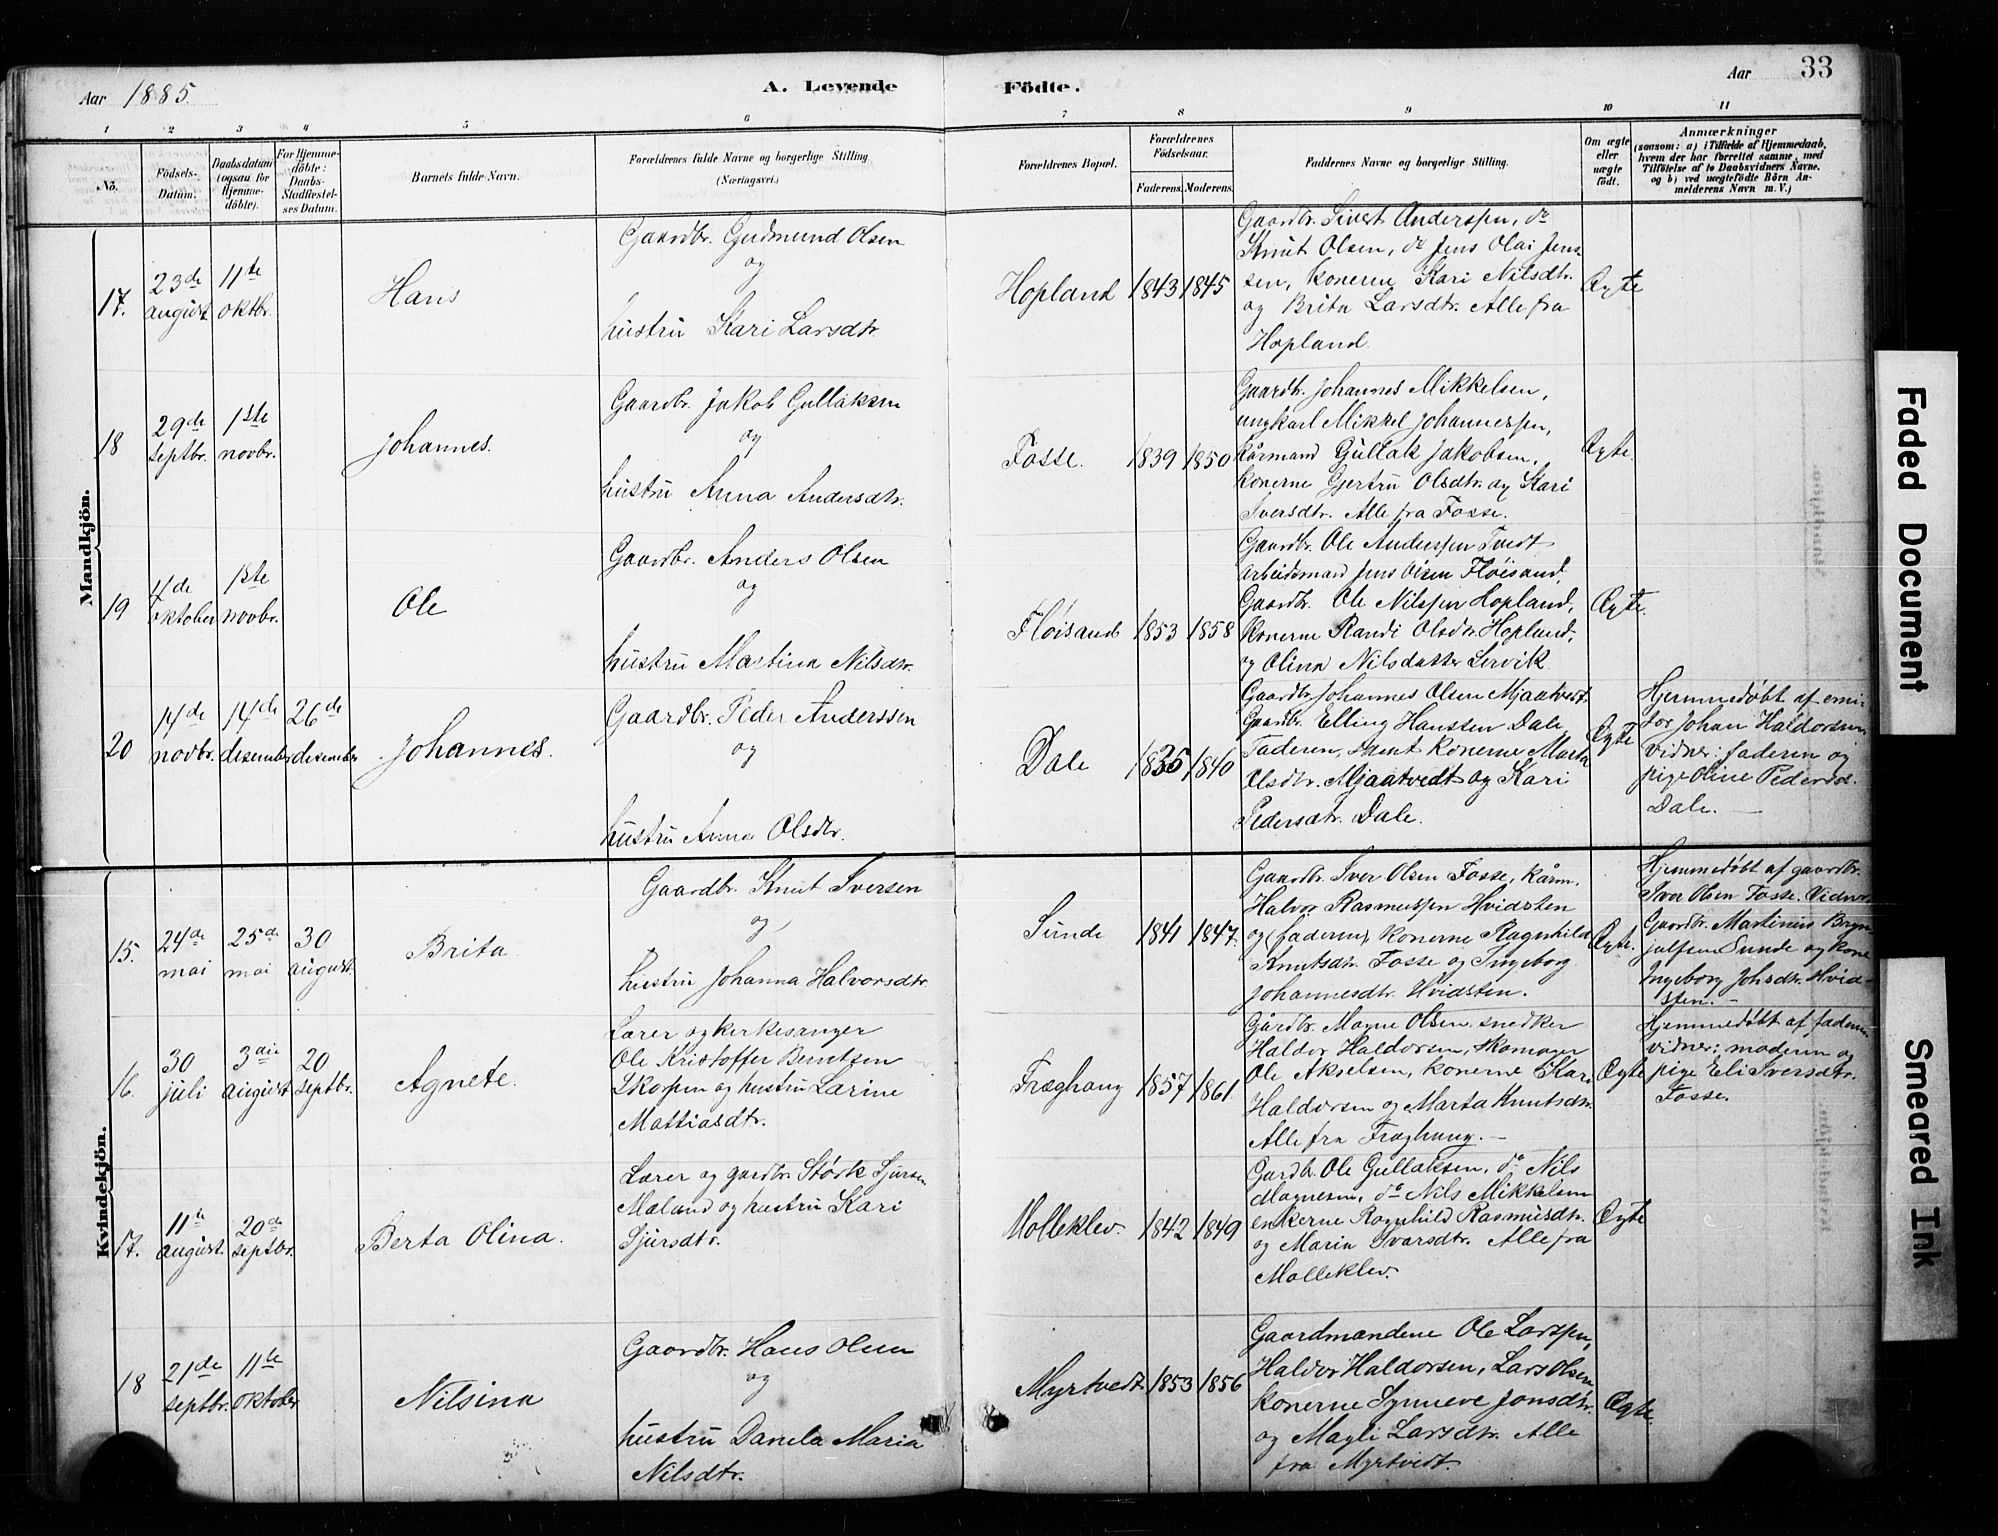 Aar 1885.
A. Levende
Födte.
Aar
33
1
2
3
4
5
6
7
8
9
10
11
No.
Födsels-
Datum.
Daabsdatum
(ogsaa for
Hjemme-
döbte).
For Hjemme-
döbte:
Daabs-
Stadfæstel-
ses Datum.
Barnets fulde Navn.
Forældrenes fulde Navne og borgerlige Stilling
(Næringsvei.)
Forældrenes Bopæl.
Forældrenes
Födselsaar.
Faderens.
Moderens.
Faddernes Navne og borgerlige Stilling.
Om ægte
eller
uægte
födt.
Anmærkninger
(saasom: a) i Tilfælde af Hjemmedaab,
hvem der har forrettet samme, med
Tilföielse af to Daabsvidners Navne.
og b) ved uægtefödte Börn An-
melderens Navn m. V.)
Mandkjön.
17.
23de
august
11te
oktbr.
Hans
Gaardbr. Gudmund Olsen
og
hustru Kari Larsdtr.
Hopland
1843
1845
Gaardbr. Sivert Anderssen, do
Knut Olsen, do Jens Olai Jens-
sen, konerne Kari Nilsdtr.
og Brita Larsdtr. Alle fra
Hopland.
Ægte
18
29de
septbr.
1ste
novbr.
Johannes.
Gaardbr. Jakob Gullaksen
og
hustru Anna Andersdtr.
Fosse.
1839
1850
Gaardbr. Johannes Mikkelsen,
ungkarl Mikkel Johannessen,
kårmand Gullak Jakobsen,
konerne Gjertru Olsdtr. og Kari
Iversdtr. Alle fra Fosse.
Ægte.
19
4de
oktober
1ste
novbr.
Ole
Gaardbr. Anders Olsen
og
hustru Martina Nilsdtr.
Fløisand
1853
1858
Gaardbr. Ole Anderssen Tvedt
arbeidsmand Jens Olsen Fløisand,
Gaardbr. Ole Nilssen Hopland,
konerne Randi Olsdtr. Hopland,
og Olina Nilsdatter Lervik.
Ægte.
20
14de
novbr.
14de
desember
26de
desember
Johannes.
Gaardbr. Peder Anderssen
og
hustru Anna Olsdtr.
Dale
1836
1840
Gaardbr. Johannes Olsen Mjaatvedt.
Gaardbr. Elling Hanssen Dale
Faderen, samt konerne Marta
Olsdtr. Mjaatvedt og Kari
Pedersdtr. Dale.
Ægte
Hjemmedøbt af
Johan Haldorsen
vidner: faderen og
pige Oline Pedersd.
Dale.
Kvindekjön.
15.
24de
mai
25de
mai
30
august.
Brita.
Gaardbr. Knut Iversen
og
hustru Johanna Halvorsdtr.
Sunde
1841
1847.
Gaardbr. Iver Olsen Fosse, kårm.
Halvor Rasmussen Hvidsten
og (faderen) konerne Ragnhild
Knutsdtr. Fosse og Ingeborg
Johannesdtr. Hvidsten.
Ægte.
Hjemmedøbt af gaardbr.
Iver Olsen Fosse. Vidner
Gaardbr. Martinus Bryn-
julfsen Sunde og kone
Ingeborg Johsdtr. Hvid-
sten.
16.
30
juli
3die
august
20
septbr.
Agnete.
Lærer og kirkesanger
Ole Kristoffer Berntsen
Skorpen og hustru Larine
Mattiasdtr.
Fræghaug
1857
1861.
Gårdbr. Mogne Olsen, snedker
Haldor Haldorsen, skomager
Ole Akselsen, konerne Kari
Haldorsen og Marta Knutsdtr.
Alle fra Fræghaug.
Ægte
Hjemmedøbt af faderen
vidner: moderen og
pige Eli Iversdtr.
Fosse.
17.
11te
august.
20de
septbr.
Berta Olina.
Lærer og gaardbr. Størk Sjursen
Maland og hustru Kari
Sjursdtr.
Molleklev.
1842
1849
Gardbr. Ole Gullaksen, do Nils
Magnesen, do Nils Mikkelsen
enkerne Ragnhild Rasmusdtr.
og Maria Ivarsdtr. Alle fra
Molleklev.
Ægte
18
21de
septbr.
11te
oktober
Nilsina
Gaardbr. Hans Olsen
og
hustru Danela Maria
Nilsdtr.
Myrtvedt
1853
1856
Gaardmandene Ole Larssen,
Haldor Haldorsen, Lars Olsen
konerne Synneve Jonsdtr.
og Magli Larsdtr. Alle
fra Myrtvedt.
Ægte.
Faded Document
Smeared Ink